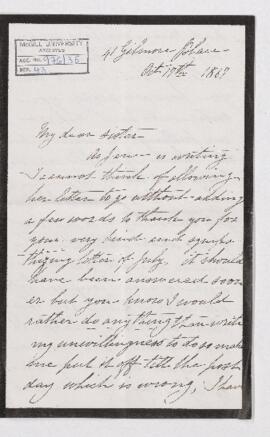 McGILL UNIVERSITY
ARCHIVES
ACC. NO. 976/36
REF. 43
41 Gilmore Place
Oct 19th 1869
My dear Sister
As Jem is writing
I cannot think of allowing
her letter to go without adding
a few words to thank you for
your very kind and sympa
thizing letter of July. it should
have been answered soon
er but you know I would
rather do anything than write
my unwillingness to do so make
me put it off till the post
day which is wrong, I have